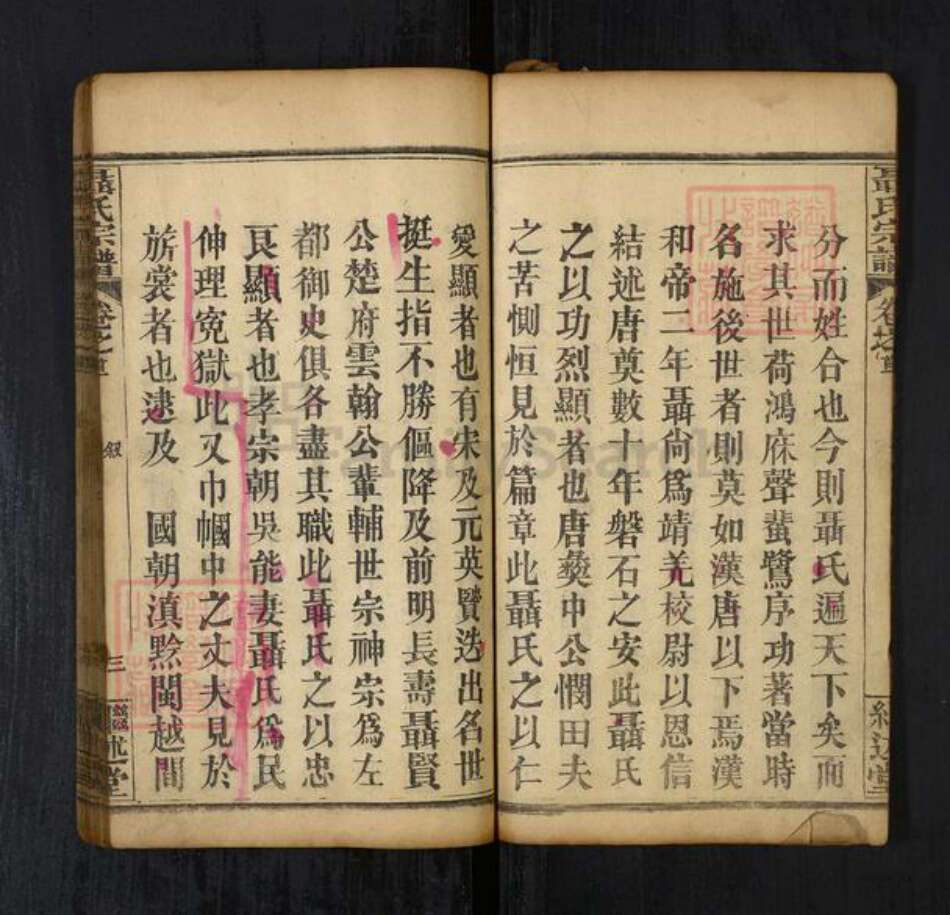 分而姓合也今則聶氏遍天下矣而
求其世荷鴻庥聲蜚鷺序功著當時
名施後世者則莫如漢唐以下焉漢
和帝二年聶尚為靖羌校尉以恩信
結述唐奠數十年磐石之安此聶氏
之以功烈顯者也唐夔中公憫田夫
之苦惻恒見於篇章此聶氏之以仁
愛顯者也有宋及元英賢迭出名世
挺生指不勝傴降及前明長壽聶賢
公楚府雲翰公輩輔世宗神宗為左
都御史俱各盡其職此聶氏之以忠
良顯者也孝宗朝吳能妻聶氏為民
伸理寃獄此又巾幗中之丈夫見於
旂裳者也逮及 國朝滇黔閩越間
聶氏宗譜
卷之首
敘
三
述堂